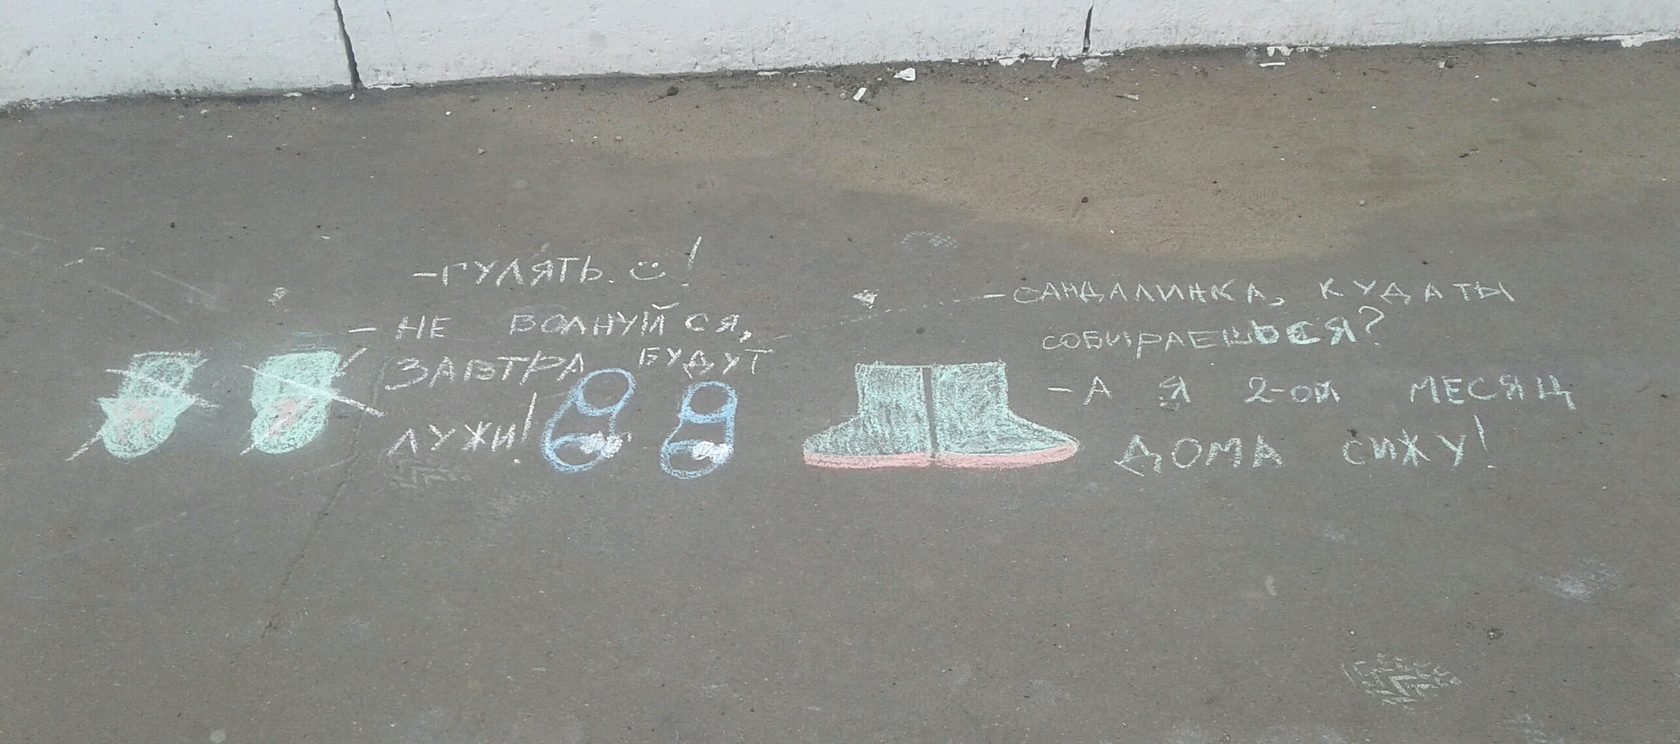 -ГУЛЯТЬ.!
- НЕ ВОЛНУЙСЯ,
ЗАВТРА БУДУТ
ЛУЖИ!
- САНДАЛИНКА, КУДА ТЫ
СОБИРАЕШЬСЯ?
- А Я 2-ОЙ МЕСЯЦ
ДОМА СИЖУ!